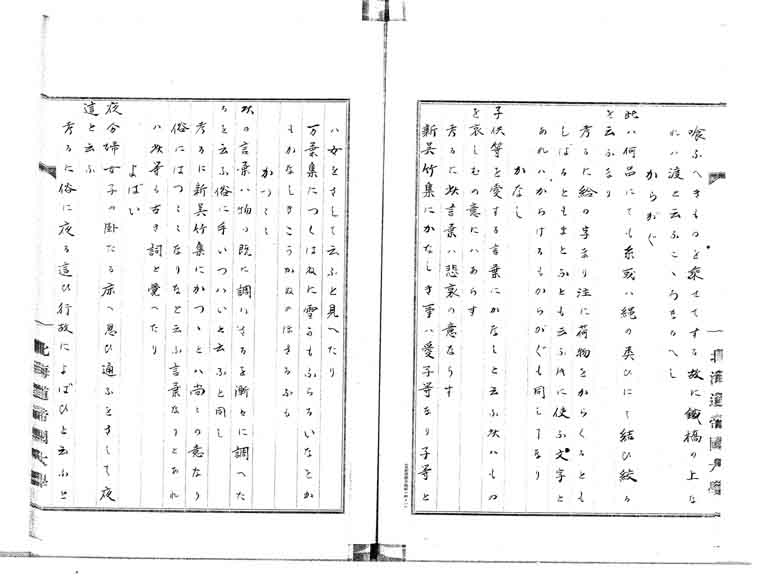 喰ふへきものを乗せてする故に鐵橋の上な
れハ渡と云ふこゝろなるへし
からがぐ
此ハ何品にても糸或ハ縄の類ひにて結ひ絞る
を云ふなり
考るに給の字なり注に荷物をからくるとも
しばるともまとふとも云ふ所に使ふ文字と
あれハからけるもからがぐも同してなり
かなし
子供等を愛する言葉にかなしと云ふ次ハもの
を哀しむの意にハあらす
考るに此言葉ハ悲哀の意ならす
新呉竹集にかなしき事ハ愛子等なり子等と
北海道帝國大學
ハ女をさして云ふと見へたり
万葉集につくはねに雪かもふらるいなをか
もかなしきころかぬのほさるかも
かつ〱
此の言葉ハ物の既に調ハさるを漸々に調へた
るを云ふ俗に手いつハいと云ふと同し
考るに新呉竹集にかつゝとハ尚々の意なり
俗にはつ〱なりなと云ふ言葉なりとあれ
ハ此等も古き詞と覺へたり
よばい
夜分婦女子の臥たる床へ忍ひ通ふをさして夜
這と云ふ
考るに俗に夜る這ひ行故によばひと云ふと
北海道帝國大學